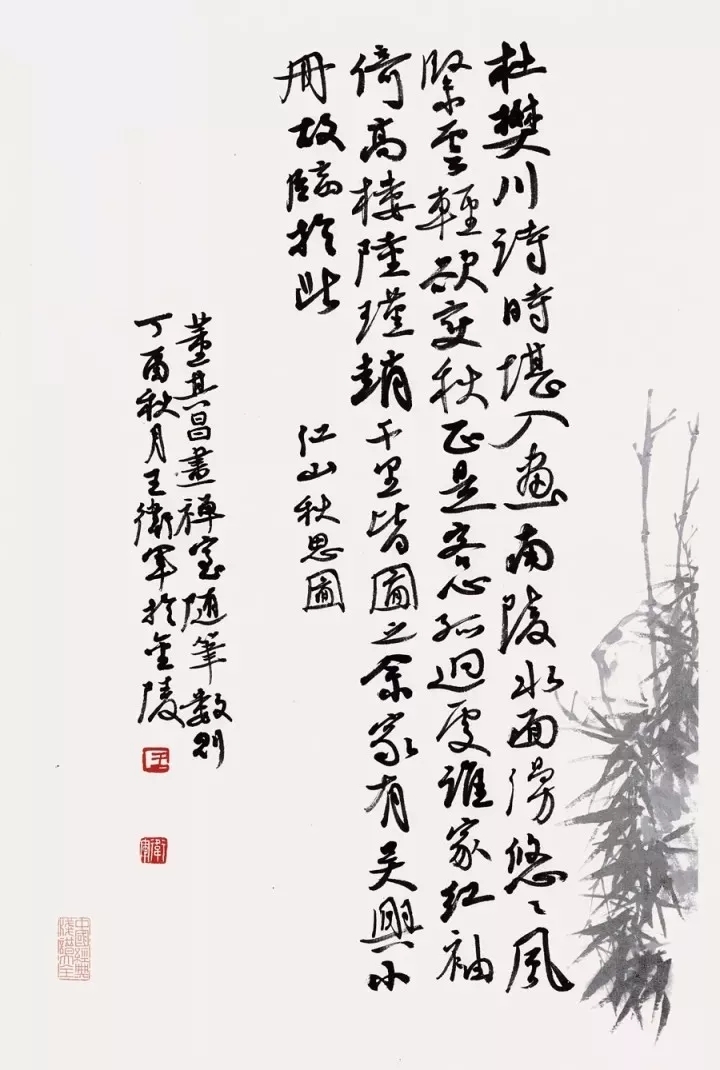 杜樊川詩時堪入畫南陵水面漫悠〻風
緊雲輕欲變秋正是客心孤迥處誰家紅袖
倚高樓陸瑾趙千里皆圖之余家有吴興小
冊故臨於此
江山秋思圖
董其昌畫禪室随筆數則
丁酉秋月王衛軍於金陵